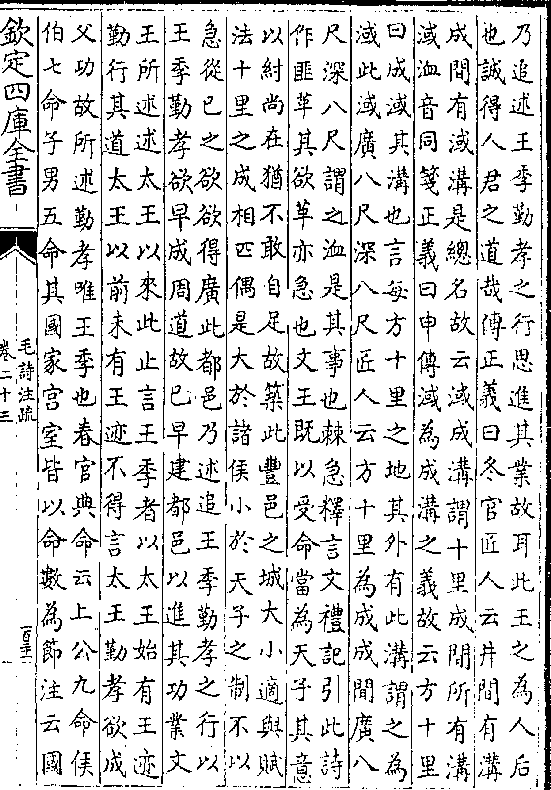 乃追述王季勤孝之行思進其業故耳此王之為人后
也誠得人君之道哉傳正義曰冬官匠人云井間有溝
成間有淢溝是總名故云淢成溝謂十里成間所有溝
淢洫音同箋正義曰申傳淢為成溝之義故云方十里
曰成淢其溝也言每方十里之地其外有此溝謂之為
淢此淢廣八尺深八尺匠人云方十里為成成間廣八
尺深八尺謂之洫是其事也棘急釋言文禮記引此詩
作匪革其欲革亦急也文王既以受命當為天子其意
以紂尚在猶不敢自足故築此豐邑之城大小適與賦
法十里之成相匹偶是大於諸侯小於天子之制不以
急從已之欲欲得廣此都邑乃述追王季勤孝之行以
王季勤孝欲早成周道故已早建都邑以進其功業文
王所述述太王以來此止言王季者以太王始有王迹
勤行其道太王以前未有王迹不得言太王勤孝欲成
父功故所述勤孝唯王季也春官典命云上公九命侯
伯七命子男五命其國家宮室皆以命數為節注云國
欽定四庫全書
毛詩注疏
卷二十三